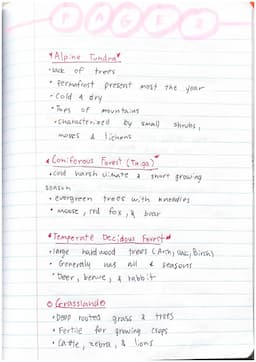 PAGES
*Alpine Tundra*
• Lack of trees
• Permafrost present most the year
• Cold & dry
• Tops of mountains
• characterized by small shrubs,
moses & lichens
Coniferous Forest (Taiga)
• cold harsh climate & short growing
season
• evergreen trees with needles
• moose, red fox, & bear
Temperate Decidous Forest
• large hardwood trees (Arch, oak, Birsh)
• Generally has all 4 seasons
• Deer, & rabbit
Grassland
• Deep rooted grass & trees
• Fertile for growing crops
• Cattle, zebra, & lions